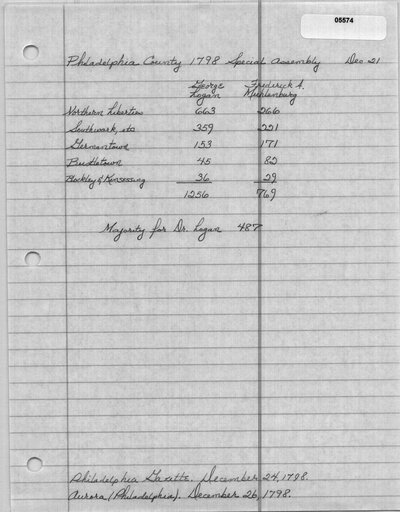 05574
Philadelphia County 1798 Special Assembly Dec 21
George Frederick A.
Logan Muhlenburg
Northern Liberties 663 266
Southwark, etc 359 221
Germantown 153 171
Bustletown 45 82
Blockley & Kensessing 36 29
1256 769
Majority for Dr. Logan 487
Philadelphia Gazette. December 24, 1798.
Aurora (Philadelphia). December 26, 1798.